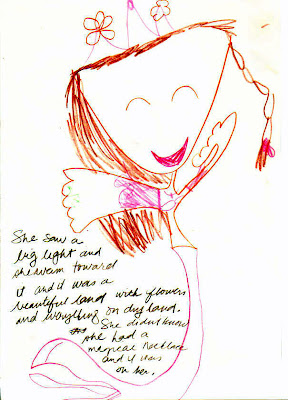 She saw a
big light and
she swam toward
it and it was a
beautiful land with flowers
and everything on dry land.
She didn't know
she had a
magical necklace
and it was
on her.